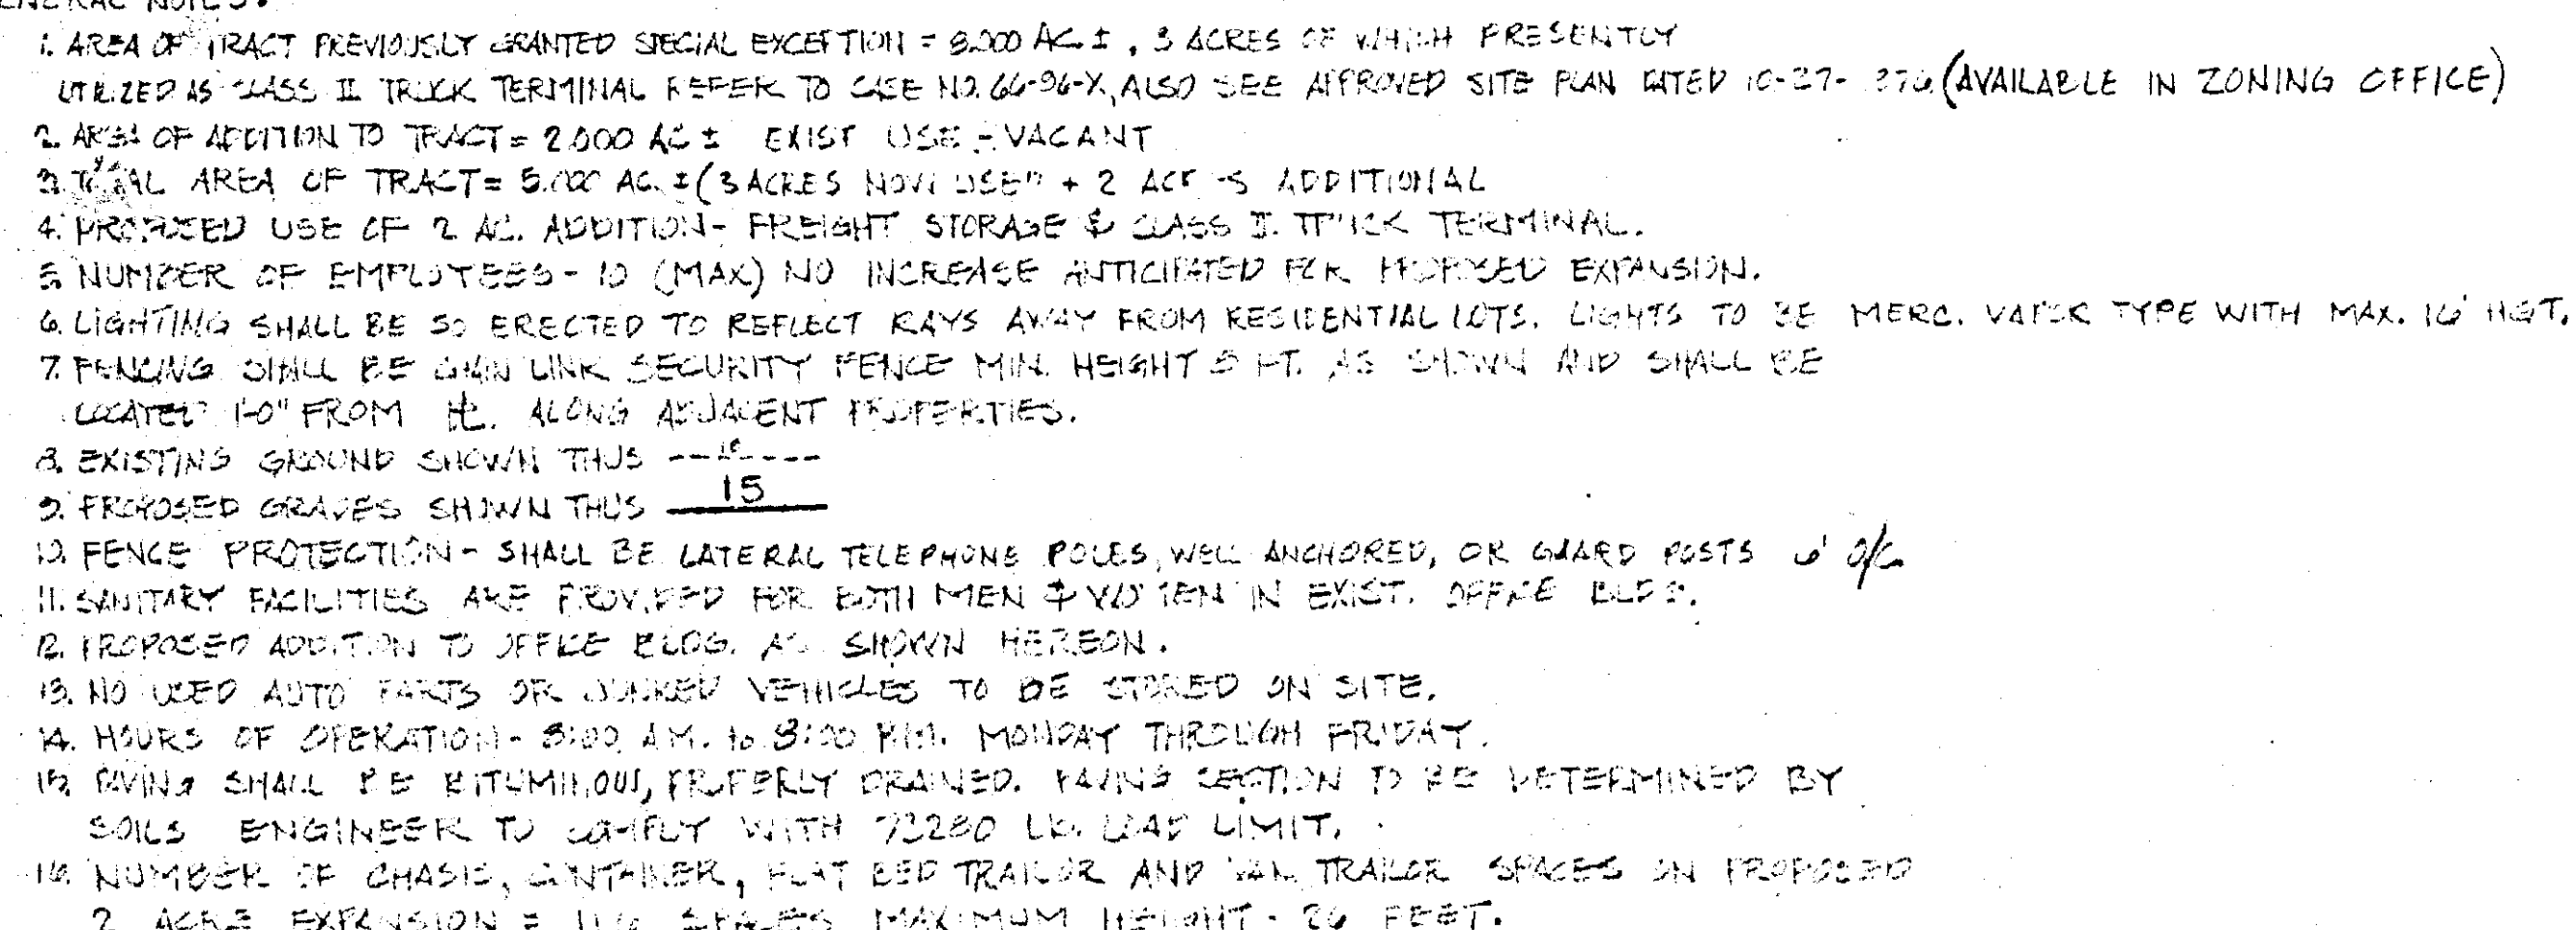 GENERAL NOTES:
1. AREA OF TRACT PREVIOUSLY GRANTED SPECIAL EXCEPTION = 8.000 AC ±, 3 ACRES OF WHICH PRESENTLY
UTILIZED AS CLASS II TRUCK TERMINAL REFER TO CASE NO. 66-96-X, ALSO SEE APPROVED SITE PLAN DATED 10-27- (AVAILABLE IN ZONING OFFICE)
2. AREA OF ADDITION TO TRACT = 2.000 AC ± EXIST USE - VACANT
3. TOTAL AREA OF TRACT = 5.000 AC. ± (3 ACRES NOW USED + 2 ACRES ADDITIONAL
4. PROPOSED USE OF 2 AC. ADDITION - FREIGHT STORAGE & CLASS II TRUCK TERMINAL.
5. NUMBER OF EMPLOYEES - 10 (MAX) NO INCREASE ANTICIPATED FOR PROPOSED EXPANSION.
6. LIGHTING SHALL BE SO ERECTED TO REFLECT RAYS AWAY FROM RESIDENTIAL LOTS. LIGHTS TO BE MERC. VAPOR TYPE WITH MAX. 16' HGT.
7. FENCING SHALL BE CHAIN LINK SECURITY FENCE MIN. HEIGHT 5 FT. AS SHOWN AND SHALL BE
LOCATED 1'-0" FROM ALONG ADJACENT PROPERTIES.
8. EXISTING GROUND SHOWN THUS
9. PROPOSED GRADES SHOWN THUS 15
10. FENCE PROTECTION - SHALL BE LATERAL TELEPHONE POLES, WELL ANCHORED, OR GUARD POSTS 6' O/C
11. SANITARY FACILITIES ARE PROVIDED FOR BOTH MEN & WOMEN IN EXIST. OFFICE BLDG.
12. PROPOSED ADDITION TO OFFICE BLDG. AS SHOWN HEREON.
13. NO USED AUTO PARTS OR JUNKED VEHICLES TO BE STORED ON SITE.
14. HOURS OF OPERATION - 8:00 A.M. to 8:00 P.M. MONDAY THROUGH FRIDAY.
15. PAVING SHALL BE BITUMINOUS, PROPERLY DRAINED. PAVING SECTION TO BE DETERMINED BY
SOILS ENGINEER TO COMPLY WITH 73280 LB. LOAD LIMIT.
16. NUMBER OF CHASIS, CONTAINER, FLAT BED TRAILOR AND VAN TRAILOR SPACES ON PROPOSED
2 ACRE EXPANSION = SPACES MAXIMUM HEIGHT - 26 FEET.